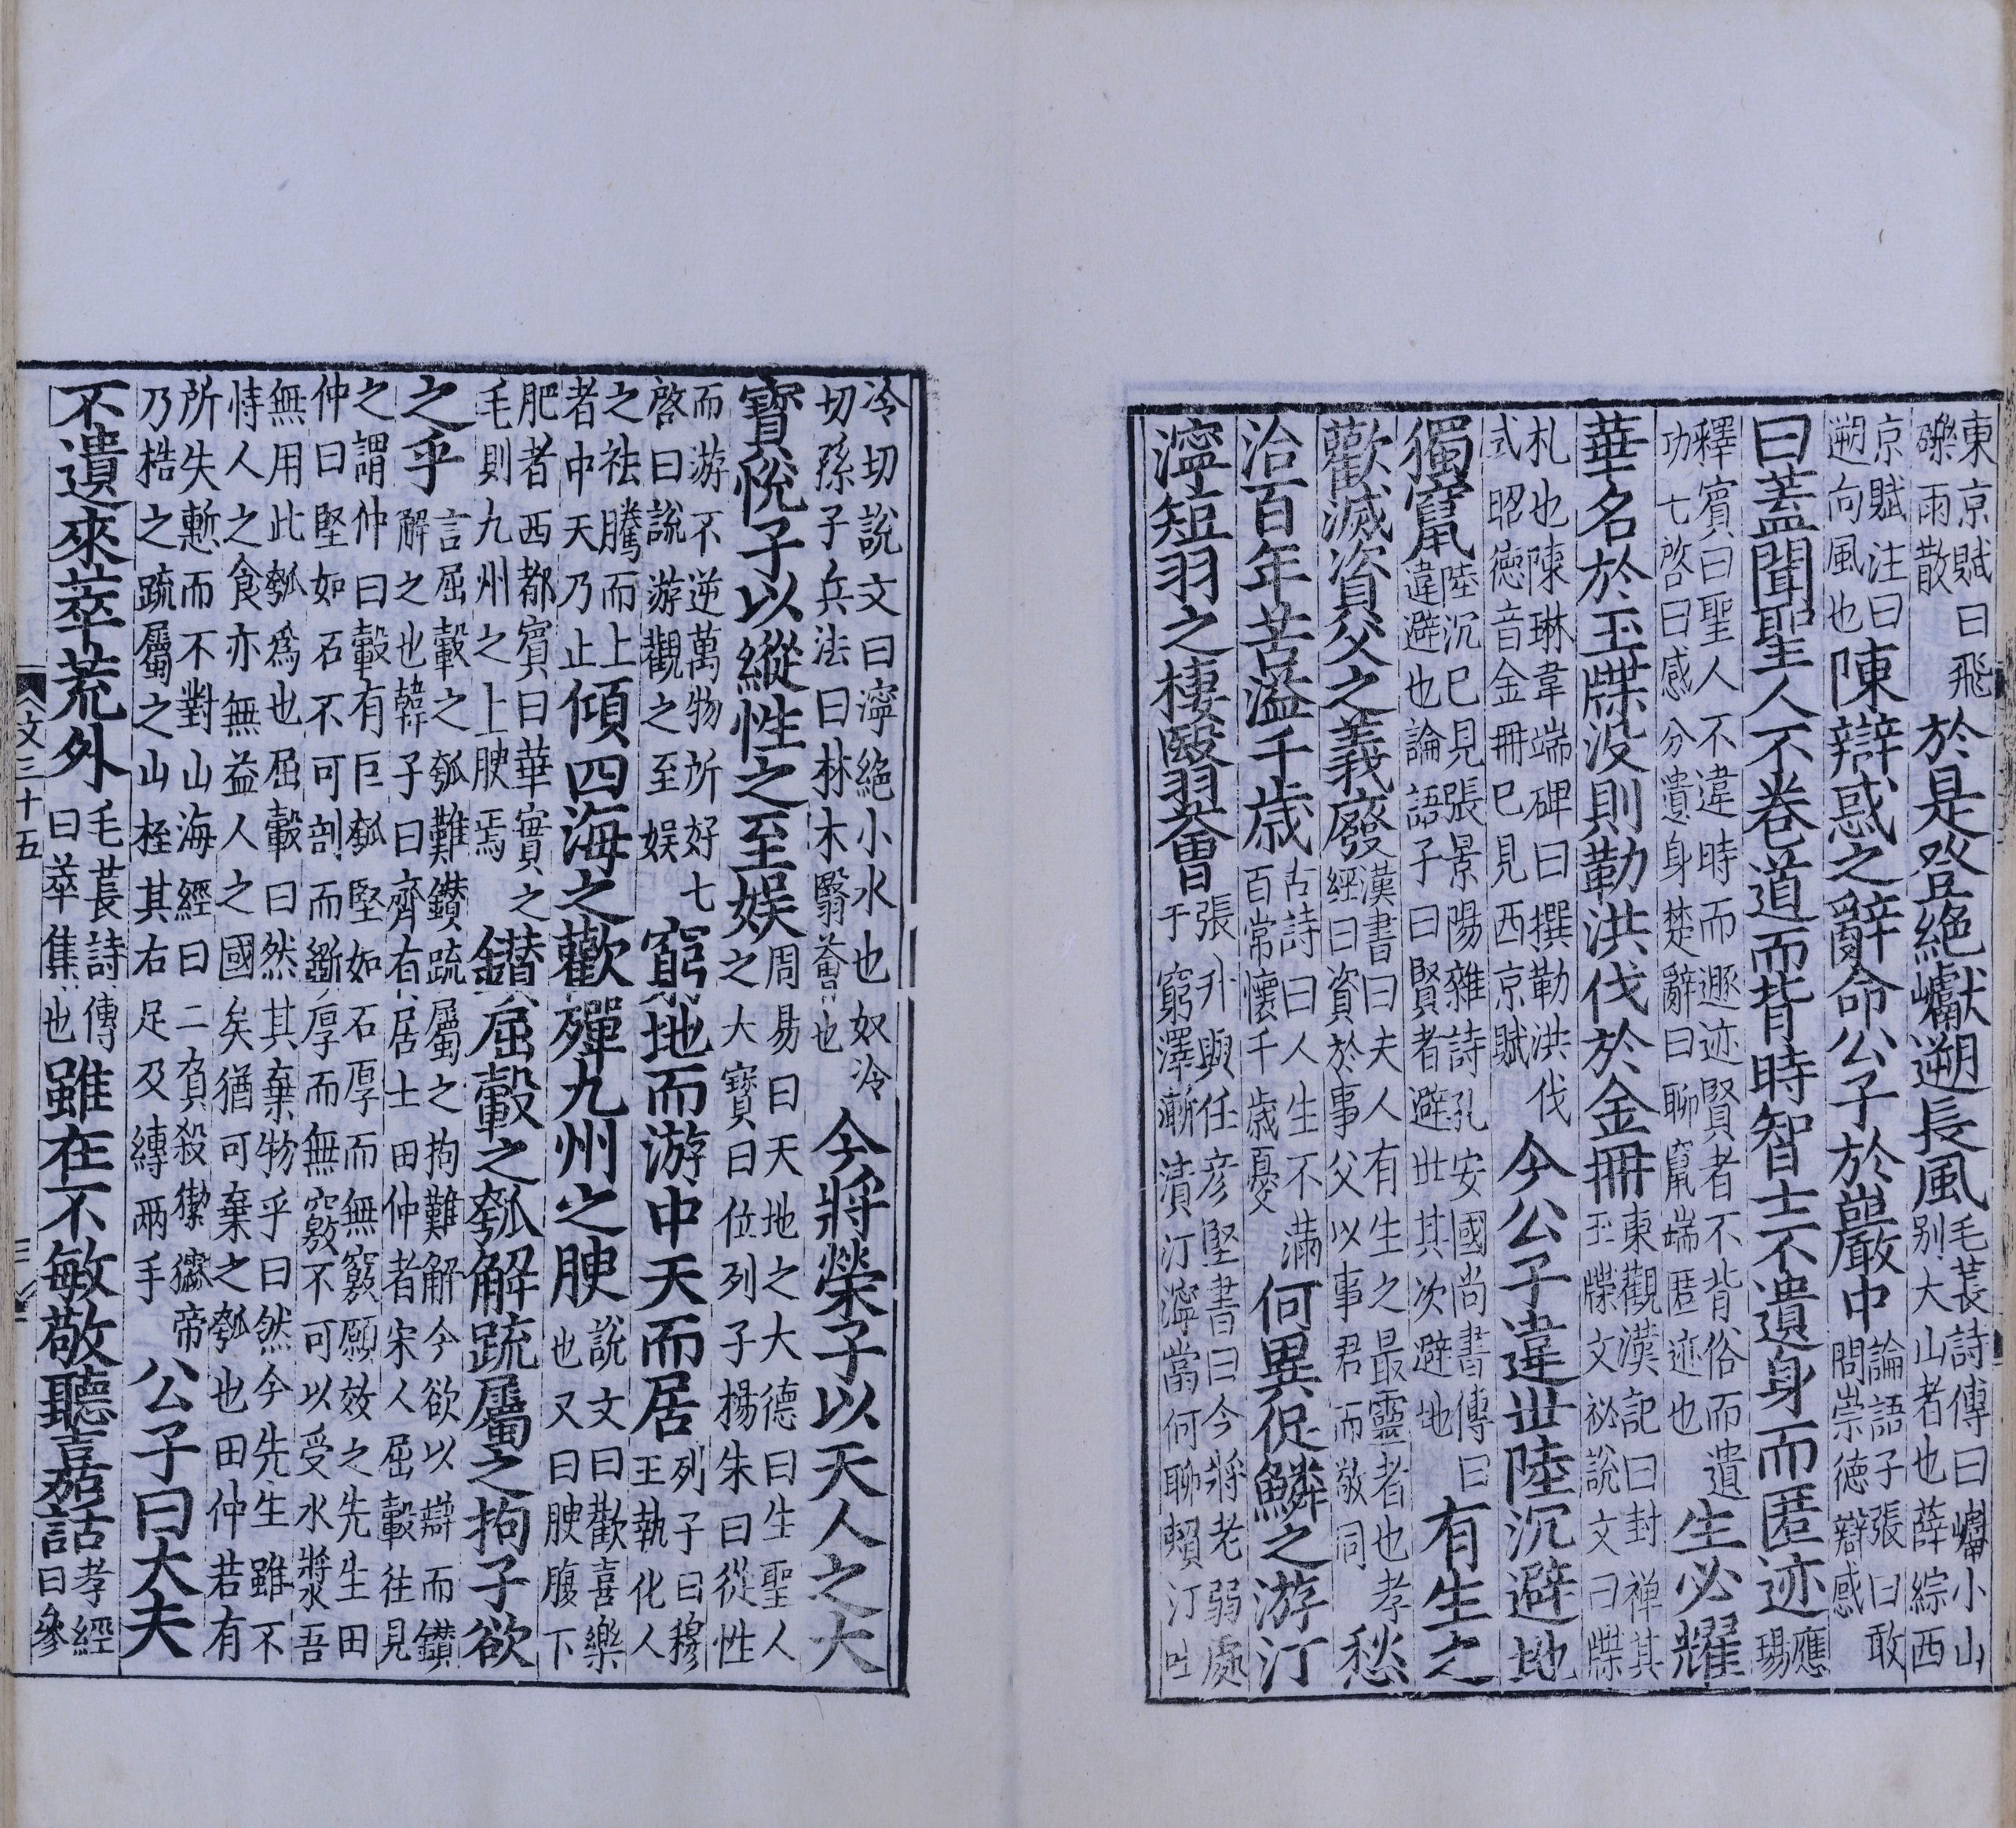 東京賦曰飛礫雨散於是登絶巘遡長風毛萇詩傳曰巘小山別大山者也薛綜西
京賦注曰遡向風也陳辯惑之辭命公子於巖中論語子張曰敢問崇徳辯惑
曰蓋聞聖人不卷道而背時智士不遺身而匿迹應瑒
釋賓曰聖人不違時而遯迹賢者不背俗而遺功七啓曰感分遺身楚辭曰聊竄端匿迹也生必耀
華名於玉牒没則勒洪伐於金冊東觀漢記曰封禅其玉牒文祕說文曰牒
札也陳琳韋端碑曰撰勒洪伐式昭徳音金冊巳見西京賦今公子違丗陸沉避地
獨竄陸沉巳見張景陽雜詩孔安國尚書傳曰違避也論語子曰賢者避丗其次避地有生之
歡滅資父之義廢漢書曰夫人有生之最靈者也孝經曰資於事父以事君而敬同愁
洽百年苦溢千歳古詩曰人生不滿百常懷千歳憂何異促鱗之游汀
濘短羽之棲翳薈張升與任彦堅書曰今將老弱處于窮澤漸漬汀濘當何聊賴汀吐
冷切說文曰濘絶小水也奴冷切孫子兵法曰林木翳薈也今將榮子以天人之大
寶悅子以縱性之至娱周易曰天地之大德曰生聖人之大寶曰位列子楊朱曰從性
而游不逆萬物所好七啓曰說游觀之至娱窮地而游中天而居列子曰穆王執化人
之袪騰而上者中天乃止傾四海之歡殫九州之腴說文曰歡喜樂也又曰腴腹下
肥者西都賓曰華實之毛則九州之上腴焉鑚屈轂之瓠解疏屬之拘子欲
之乎言屈轂之瓠難鑚疏屬之拘難解今欲以辯而鑚解之也韓子曰齊有居士田仲者宋人屈轂往見
之謂仲曰轂有巨瓠堅如石厚而無竅願效之先生田仲曰堅如石不可剖而斵厚而無竅不可以受水漿吾
無用此瓠爲也屈轂曰然其棄物乎曰然今先生雖不恃人之食亦無益人之國矣猶可棄之瓠也田仲若有
所失慙而不對山海經曰二負殺猰㺄帝乃梏之疏屬之山桎其右足及縛兩手公子曰大夫
不遺來萃荒外毛萇詩傳曰萃集也雖在不敏敬聽嘉話孝經曰參
文三十五
三